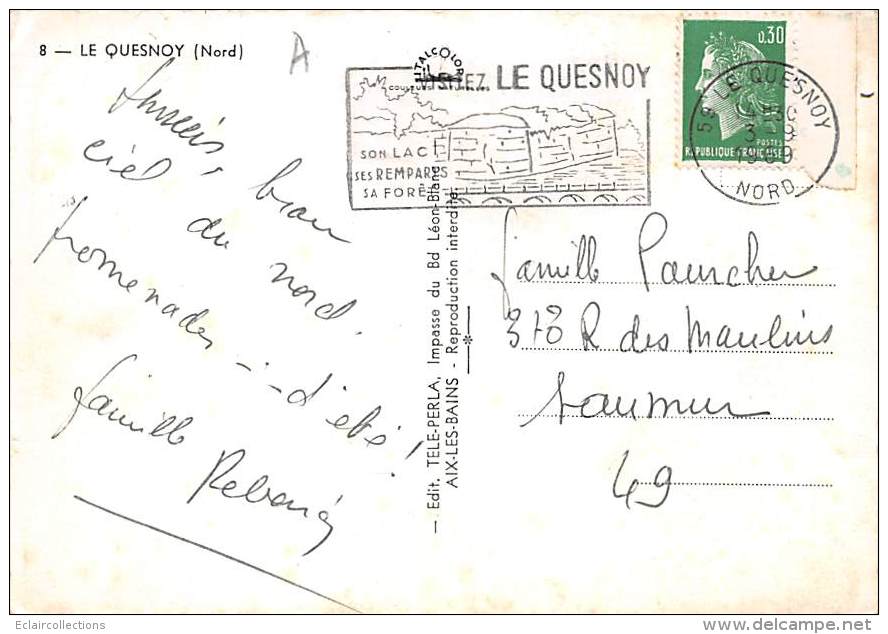 8 — LE QUESNOY (Nord)
A
ITALCOLOR
VISITEZ LE QUESNOY
SON LAC
SES REMPARTS
SA FORÊT
0.30
POSTES
REPUBLIQUE FRANÇAISE
59 LE QUESNOY
3-9
1969
NORD
beau
ciel du nord.
promenades - - d'été!
famille
— Edit. TELE-PERLA, Impasse du Bd Léon-Blanc
AIX-LES-BAINS - Reproduction interdite
famille Pourcher
378 R des Moulins
Saumur
49
Eclaircollections
delcampe.net